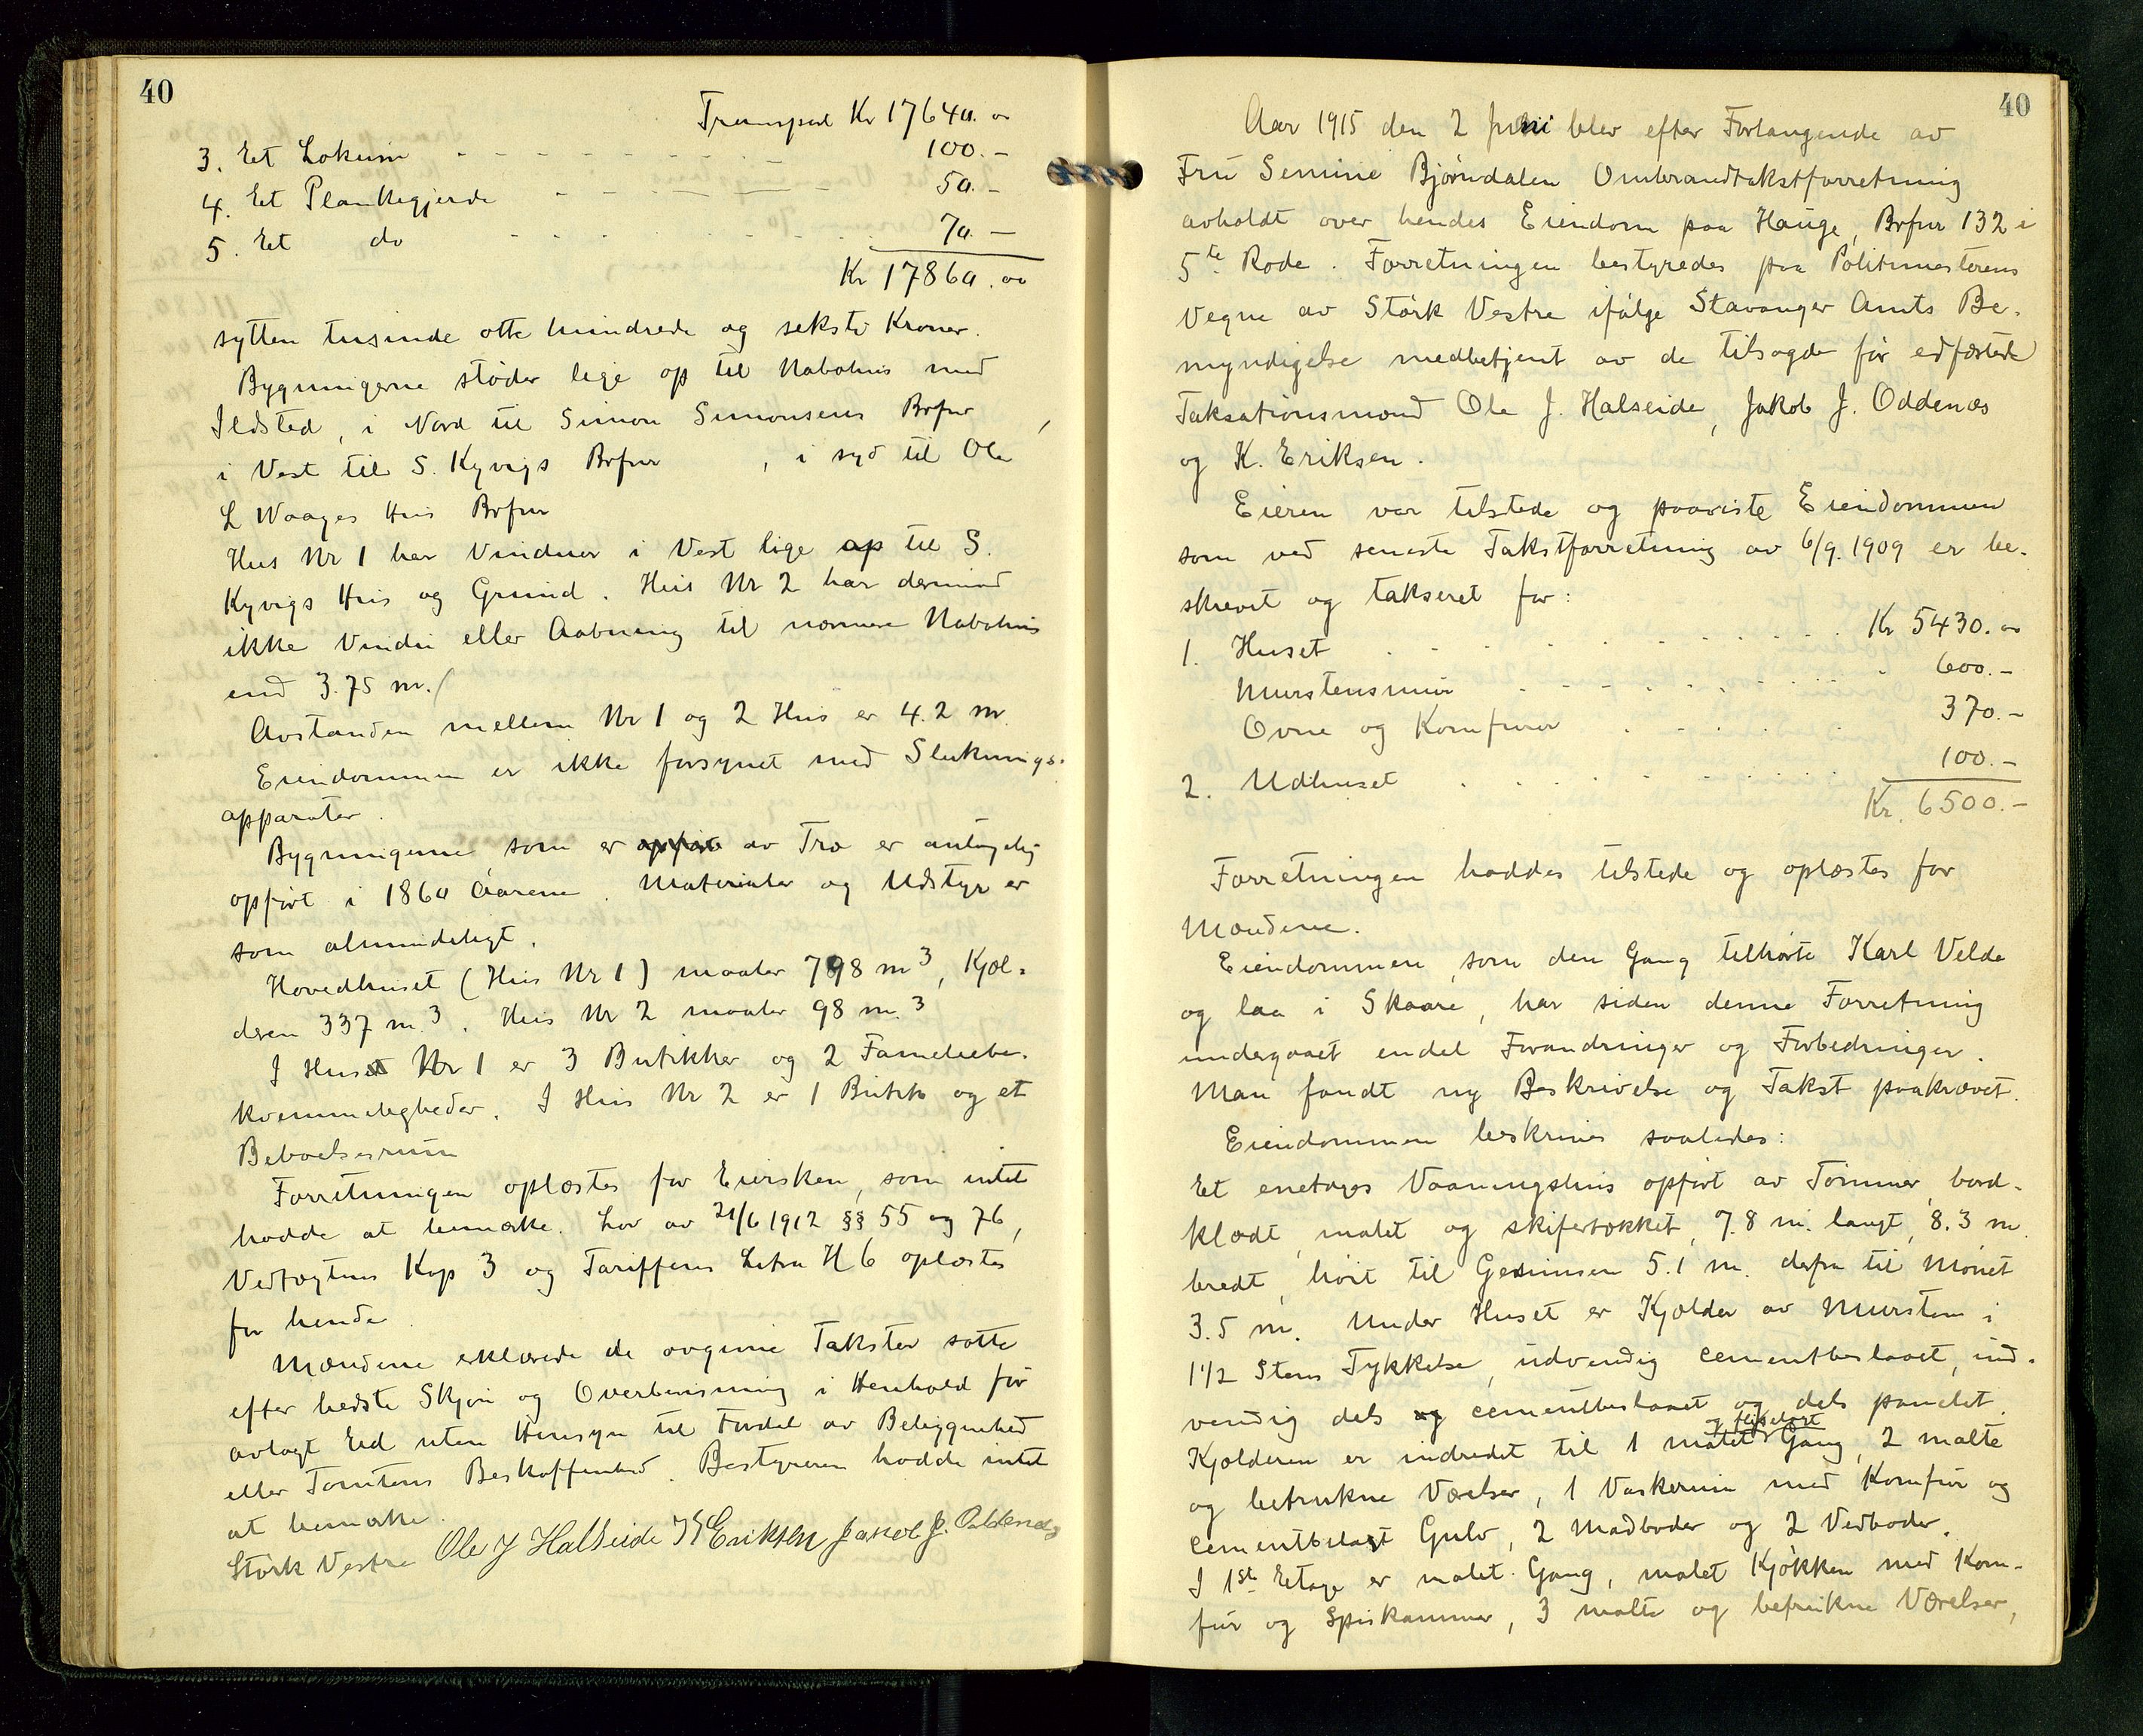 40
Transport Kr 17640.00
3. Et Lokum - - - - - - - - 100.-
4. Et Plankegjerde - - - - - 50.-
5. Et do - - - - - - - 70.-
Kr 17860.00
sytten tusinde otte hundrede og seksti Kroner.
Bygningerne støder lige op til Nabohus med
Ildsted, i Nord til Simon Simonsens Brfnr ,
i Vest til S. Kyvigs Brfnr , i syd til Ole
L Waages Hus Brfnr
Hus Nr 1 har Vinduer i Vest lige op til S.
Kyvigs Hus og Grund. Hus Nr 2 har derimod
ikke Vindu eller Aabning til nærmere Nabohus
end 3.75 m.
Avstanden mellem Nr 1 og 2 Hus er 4.2 m.
Eiendommen er ikke forsynet med Sluknings-
apparater.
Bygningerne som er av Træ er antagelig
opført i 1860 Aarene. Materialer og Udstyr er
som almindeligt.
Hovedhuset (Hus Nr 1) maaler 798 m³, Kjæl-
deren 337 m.³. Hus Nr 2 maaler 98 m.³
I Hus Nr 1 er 3 Butikker og 2 Familiebe-
kvemmeligheder. I Hus Nr 2 er 1 Butik og et
Beboelsesrum
Forretningen oplæstes for Eiersken, som intet
hadde at bemærke. Lov av 21/6 1912 §§ 55 og 76,
Vedtægtens Kap 3 og Tariffens Litra H 6 oplæstes
for hende.
Mændene erklærede de avgivne Takster satte
efter bedste Skjøn og Overbevisning i Henhold før
avlagt Ed uten Hensyn til Fordel av Beliggenhed
eller Tomtens Beskaffenhed. Bestyreren hadde intet
at bemærke.
Størk Vestre Ole J Halseide K Eriksen Jakob J. Oddenæs
40
Aar 1915 den 2 Juni blev efter Forlangende av
Fru Semine Bjørndalen Ombrandtakstforretning
avholdt over hendes Eiendom paa Hauge, Brfnr 132 i
5te Rode. Forretningen bestyredes paa Politimesterens
Vegne av Størk Vestre ifølge Stavanger Amts Be-
myndigelse medbetjent av de tilsagde før edfæstede
Taksationsmænd Ole J. Halseide, Jakob J. Oddenæs
og K. Eriksen.
Eieren var tilstede og paaviste Eiendommen
som ved seneste Takstforretning av 6/9. 1909 er be-
skrevet og takseret for:
1. Huset . - . . . . . - - . Kr 5430.00
Murstensmur . - - - - . . . . 600.-
Ovne og Komfurer . . - . . 370.-
2. Udhuset . . . . - . . . . 100.-
Kr. 6500.-
Forretningen haddes tilstede og oplæstes for
Mændene.
Eiendommen, som den Gang tilhørte Karl Velde
og laa i Skaare, har siden denne Forretning
undergaaet endel Forandringer og Forbedringer.
Man fandt ny Beskrivelse og Takst paakrævet.
Eiendommen beskrives saaledes:
Et enetages Vaaningshus opført av Tømmer, bord-
klædt, malet og skifertækket, 7.8 m. langt, 8.3 m.
bredt, høit til Gesimsen 5.1 m. derfra til Mønet
3.5 m. Under Huset er Kjælder av Mursten i
1 1/2 Stens Tykkelse, udvendig cementbeslaaet, ind-
vendig dels cementbeslaaet og dels panelet.
Kjælderen er indredet til 1 malet og fliselagt Gang, 2 malte
og betrukne Værelser, 1 Vaskerum med Komfur og
cementbelagt Gulv, 2 Madboder og 2 Vedboder.
I 1ste Etage er malet Gang, malet Kjøkken med Kom-
fur og Spiskammer, 3 malte og betrukne Værelser,